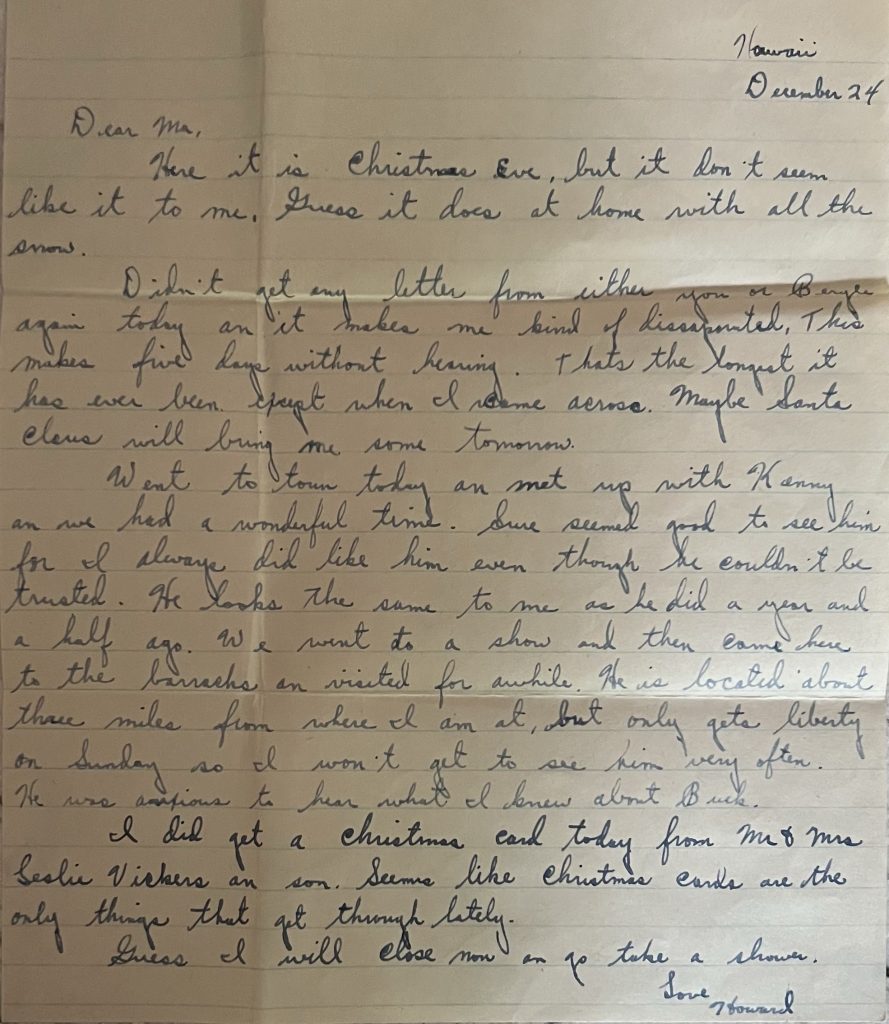 Hawaii
December 24
Dear Ma,
Here it is Christmas Eve, but it don't seem
like it to me. Guess it does at home with all the
snow.
Didn't get any letter from either you or
again today an it makes me kind of dissapointed. This
makes five days without hearing. Thats the longest it
has ever been except when I came across. Maybe Santa
Claus will bring me some tomorrow.
Went to town today an met up with Kenny
an we had a wonderful time. Sure seemed good to see him
for I always did like him even though he couldn't be
trusted. He looks the same to me as he did a year and
a half ago. We went to a show and then came here
to the barracks an visited for awhile. He is located about
three miles from where I am at, but only gets liberty
on Sunday so I won't get to see him very often.
He was anxious to hear what I knew about Buck.
I did get a Christmas card today from Mr & Mrs
Leslie Vickers an son. Seems like Christmas cards are the
only things that get through lately.
Guess I will close now an go take a shower.
Love
Howard